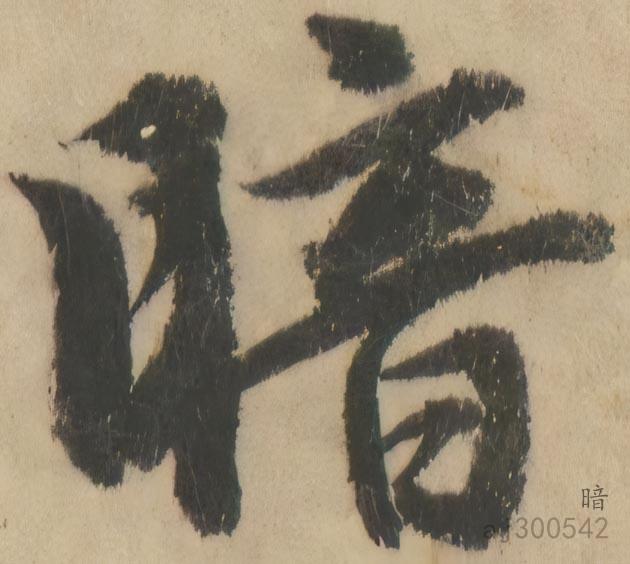 暗
暗
aj300542